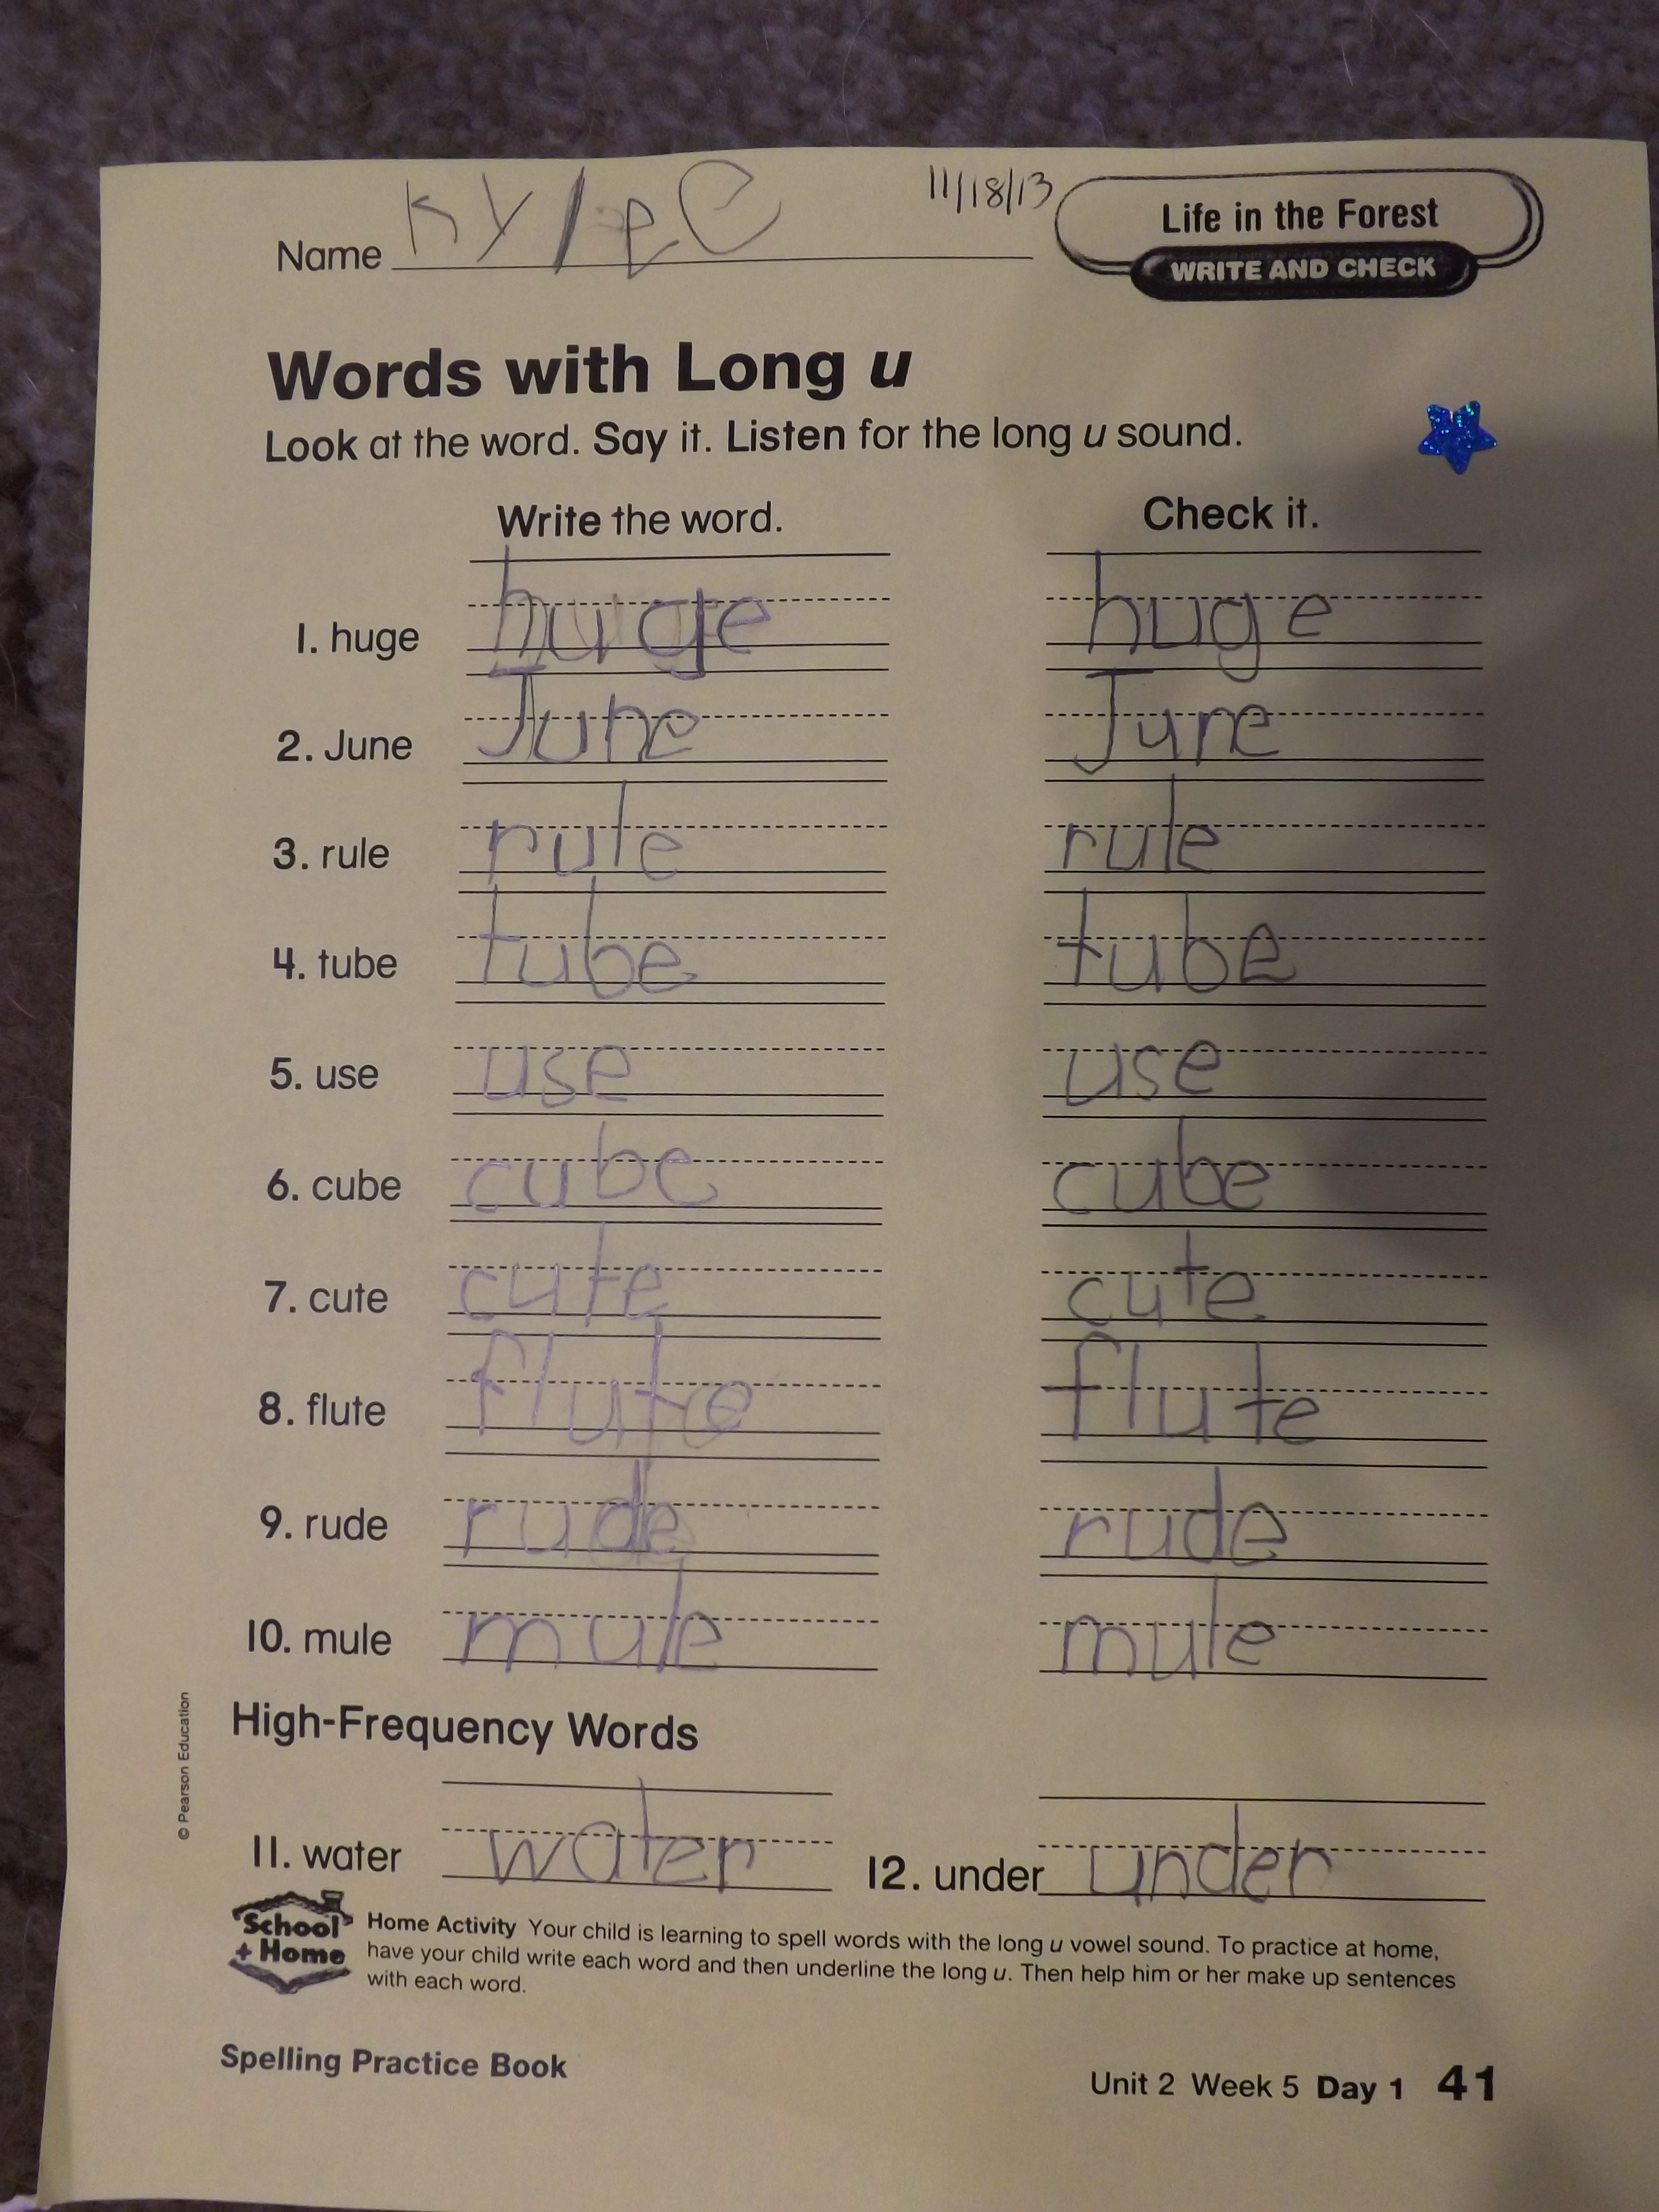 Name Kylee C 11/18/13
Life in the Forest
WRITE AND CHECK
Words with Long u
Look at the word. Say it. Listen for the long u sound.
Write the word. Check it.
1. huge huge huge
2. June June June
3. rule rule rule
4. tube tube tube
5. use use use
6. cube cube cube
7. cute cute cute
8. flute flute flute
9. rude rude rude
10. mule mule mule
High-Frequency Words
11. water water 12. under under
© Pearson Education
School
+ Home
Home Activity Your child is learning to spell words with the long u vowel sound. To practice at home,
have your child write each word and then underline the long u. Then help him or her make up sentences
with each word.
Spelling Practice Book
Unit 2 Week 5 Day 1 41